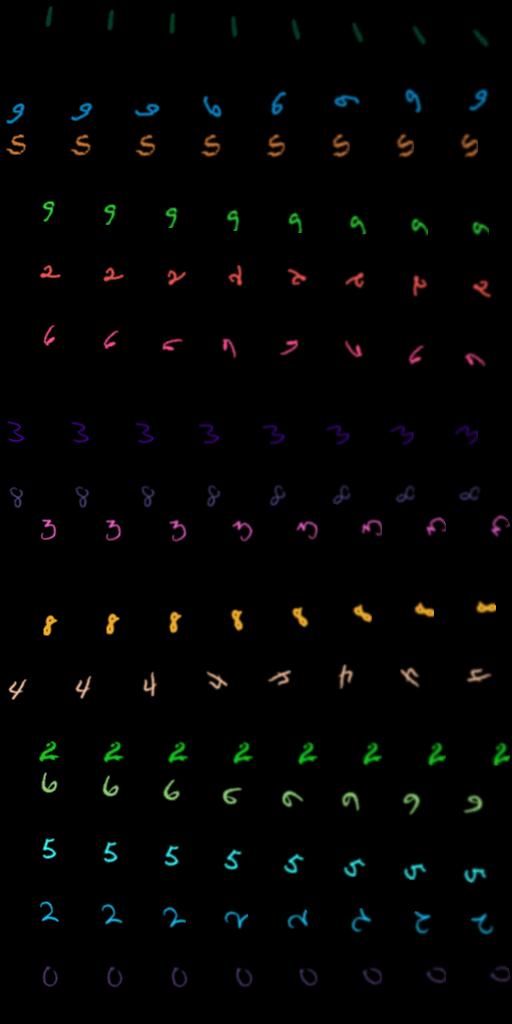 1 1 1 1 1 1 1 1
9 9 9 9 9 9 9 9
5 5 5 5 5 5 5 5
9 9 9 9 9 9 9 9
2 2 2 2 2 2 2 2
6 6 6 6 6 6 6 6
3 3 3 3 3 3 3 3
8 8 8 8 8 8 8 8
3 3 3 3 3 3 3 3
8 8 8 8 8 8 8 8
4 4 4 4 4 4 4 4
2 2 2 2 2 2 2 2
6 6 6 6 6 6 6 6
5 5 5 5 5 5 5 5
2 2 2 2 2 2 2 2
0 0 0 0 0 0 0 0